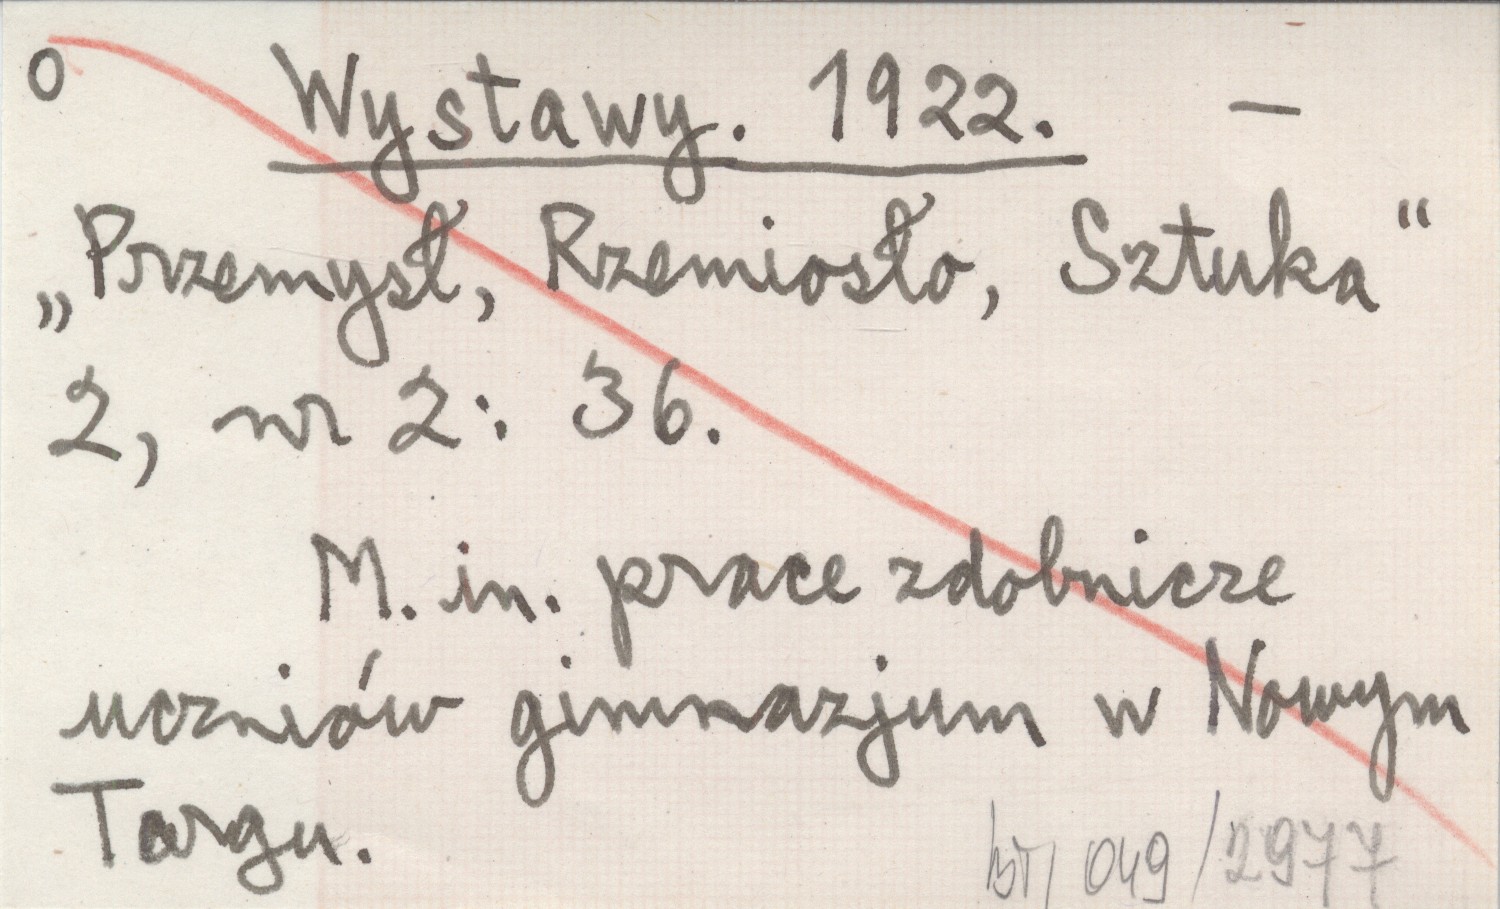 o Wystawy. 1922. —
„Przemysł, Rzemiosło, Sztuka“
2, nr 2: 36.
M. in. prace zdobnicze
uczniów gimnazjum w Nowym
Targu.
049/2977